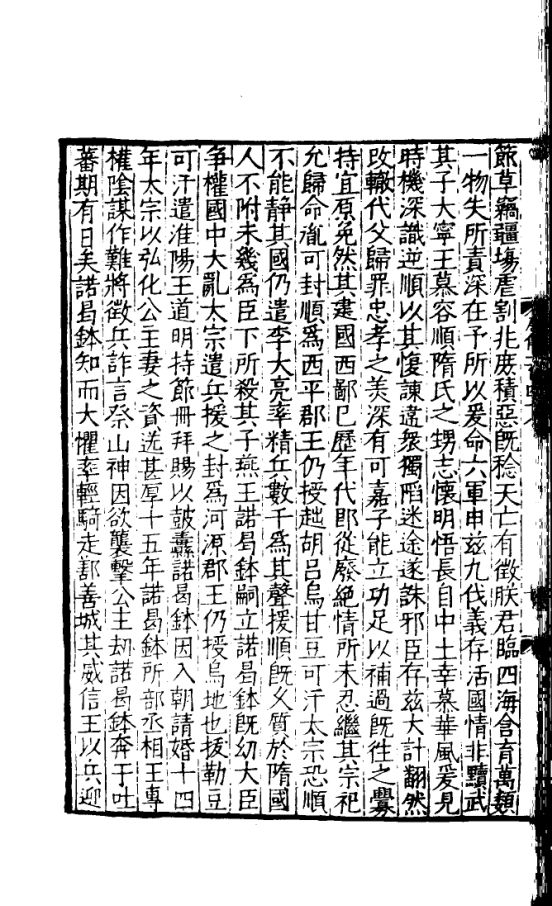 節草竊疆場虐割兆庶積惡旣稔天亡有徵朕君臨四海含育萬類
一物失所責深在予所以爰命六軍申兹九伐義存活國情非黷武
其子大寧王慕容順隋氏之甥志懷明悟長自中土幸慕華風爰見
時機深識逆順以其愎諫違衆獨陷迷途遂誅邪臣存兹大計翻然
改轍代父歸罪忠孝之美深有可嘉子能立功足以補過旣往之釁
特宜原免然其建國西鄙已歷年代即從廢絕情所未忍繼其宗祀
允歸命胤可封順爲西平郡王仍授趉胡呂烏甘豆可汗太宗恐順
不能静其國仍遣李大亮率精兵數千爲其聲援順旣乆質於隋國
人不附未幾爲臣下所殺其子燕王諾曷鉢嗣立諾曷鉢旣幼大臣
争權國中大亂太宗遣兵援之封爲河源郡王仍授烏地也拔勒豆
可汗遣淮陽王道明持節冊拜賜以鼓纛諾曷鉢因入朝請婚十四
年太宗以弘化公主妻之資送甚厚十五年諾曷鉢所部丞相王專
權隂謀作難將徵兵詐言祭山神因欲襲擊公主刧諾曷鉢奔于吐
蕃期有日矣諾曷鉢知而大懼率輕騎走鄯善城其威信王以兵迎